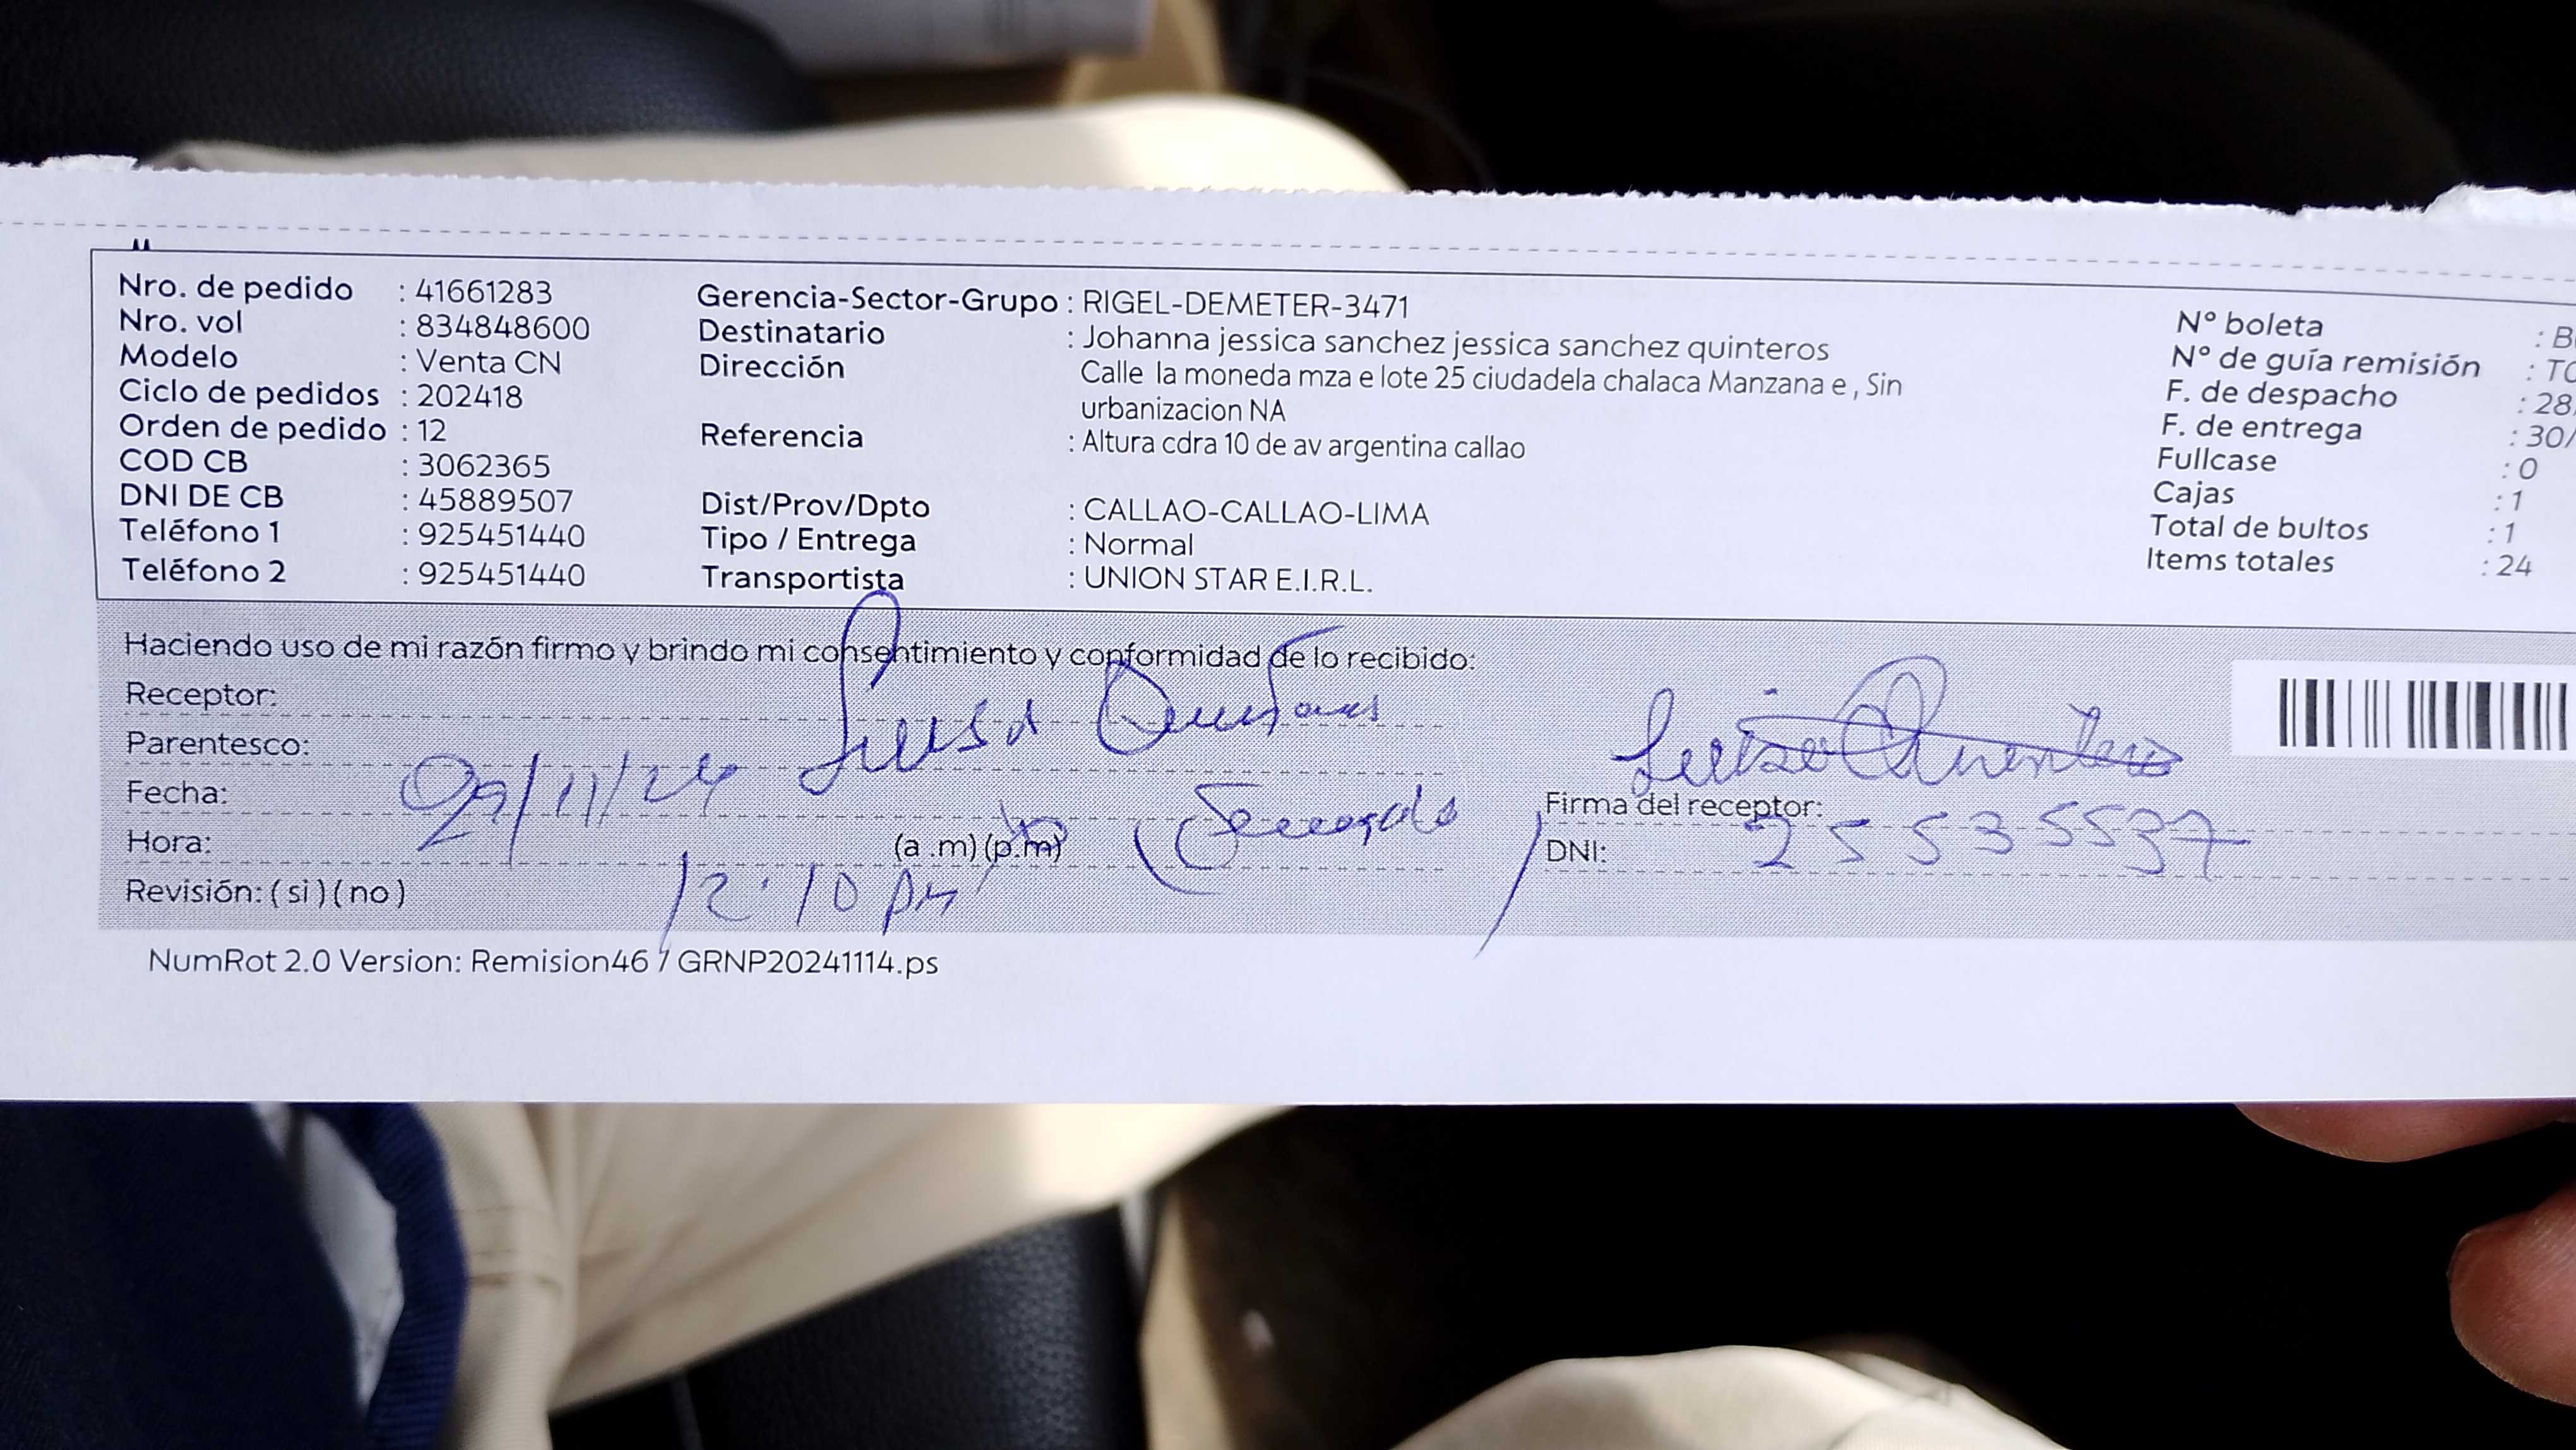 Nro. de pedido : 41661283
Nro. vol : 834848600
Modelo : Venta CN
Ciclo de pedidos : 202418
Orden de pedido : 12
COD CB : 3062365
DNI DE CB : 45889507
Teléfono 1 : 925451440
Teléfono 2 : 925451440
Gerencia-Sector-Grupo : RIGEL-DEMETER-3471
Destinatario : Johanna jessica sanchez jessica sanchez quinteros
Dirección Calle la moneda mza e lote 25 ciudadela chalaca Manzana e , Sin
urbanizacion NA
Referencia : Altura cdra 10 de av argentina callao
Dist/Prov/Dpto : CALLAO-CALLAO-LIMA
Tipo / Entrega : Normal
Transportista : UNION STAR E.I.R.L.
N° boleta : B
N° de guía remisión : TO
F. de despacho : 28
F. de entrega : 30/
Fullcase : 0
Cajas : 1
Total de bultos : 1
Items totales : 24
Haciendo uso de mi razón firmo y brindo mi consentimiento y conformidad de lo recibido:
Receptor: Luisa
Parentesco:
Fecha: 29/11/24
Hora: (a .m) (p.m)
12:10 pm
Revisión: ( si ) ( no )
Firma del receptor:
DNI: 25535537
NumRot 2.0 Version: Remision46 / GRNP20241114.ps